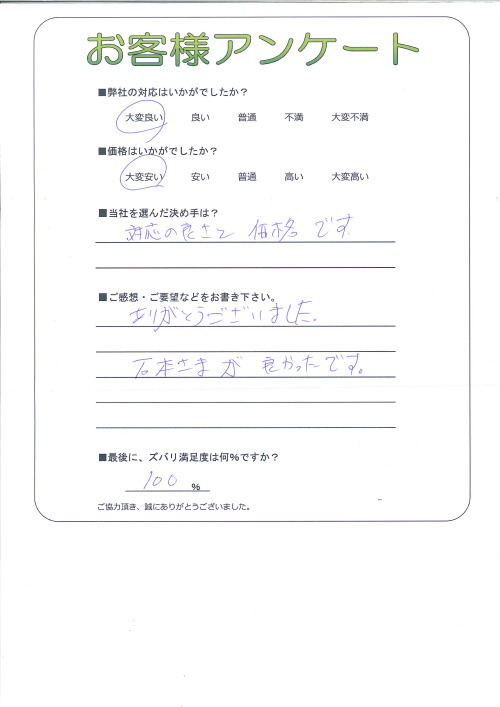 お客様アンケート
■弊社の対応はいかがでしたか？
大変良い 良い 普通 不満 大変不満
■価格はいかがでしたか？
大変安い 安い 普通 高い 大変高い
■当社を選んだ決め手は？
対応の良さと 価格 です
■ご感想・ご要望などをお書き下さい。
ありがとうございました。
石本さまが 良かったです。
■最後に、ズバリ満足度は何％ですか？
100 ％
ご協力頂き、誠にありがとうございました。